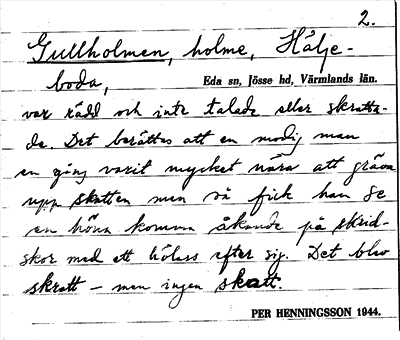 2.
Gullholmen, holme, Hälje-
boda,
Eda sn, Jösse hd, Värmlands län.
var rädd och inte talade eller skratta-
de. Det berättas att en modig man
en gång varit mycket nära att gräva
upp skatten men så fick han se
en höna komma åkande på skrid-
skor med ett hölass efter sig. Det blev
skratt – men ingen skatt.
PER HENNINGSSON 1944.